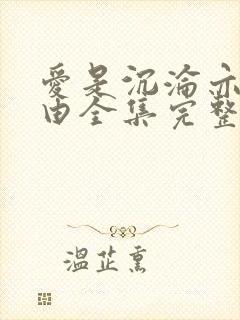 愛是沉淪亦
由全集完整
溫芷熏